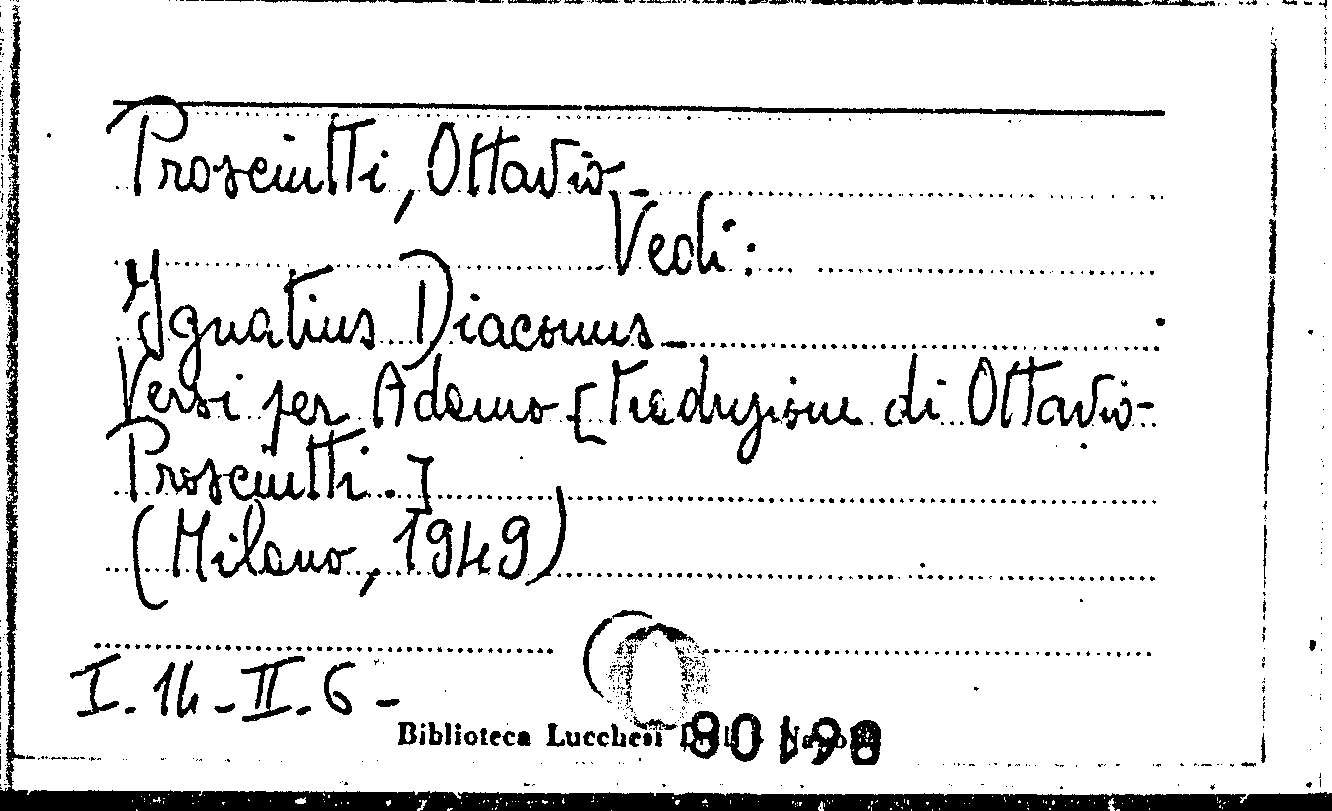 Prosciutti, Ottavio -
Vedi:
Ignatius Diaconus -
Versi per Adamo [traduzione di Ottavio
Prosciutti.]
(Milano, 1949)
I. 14 - II. 6 -
Biblioteca Lucchesi